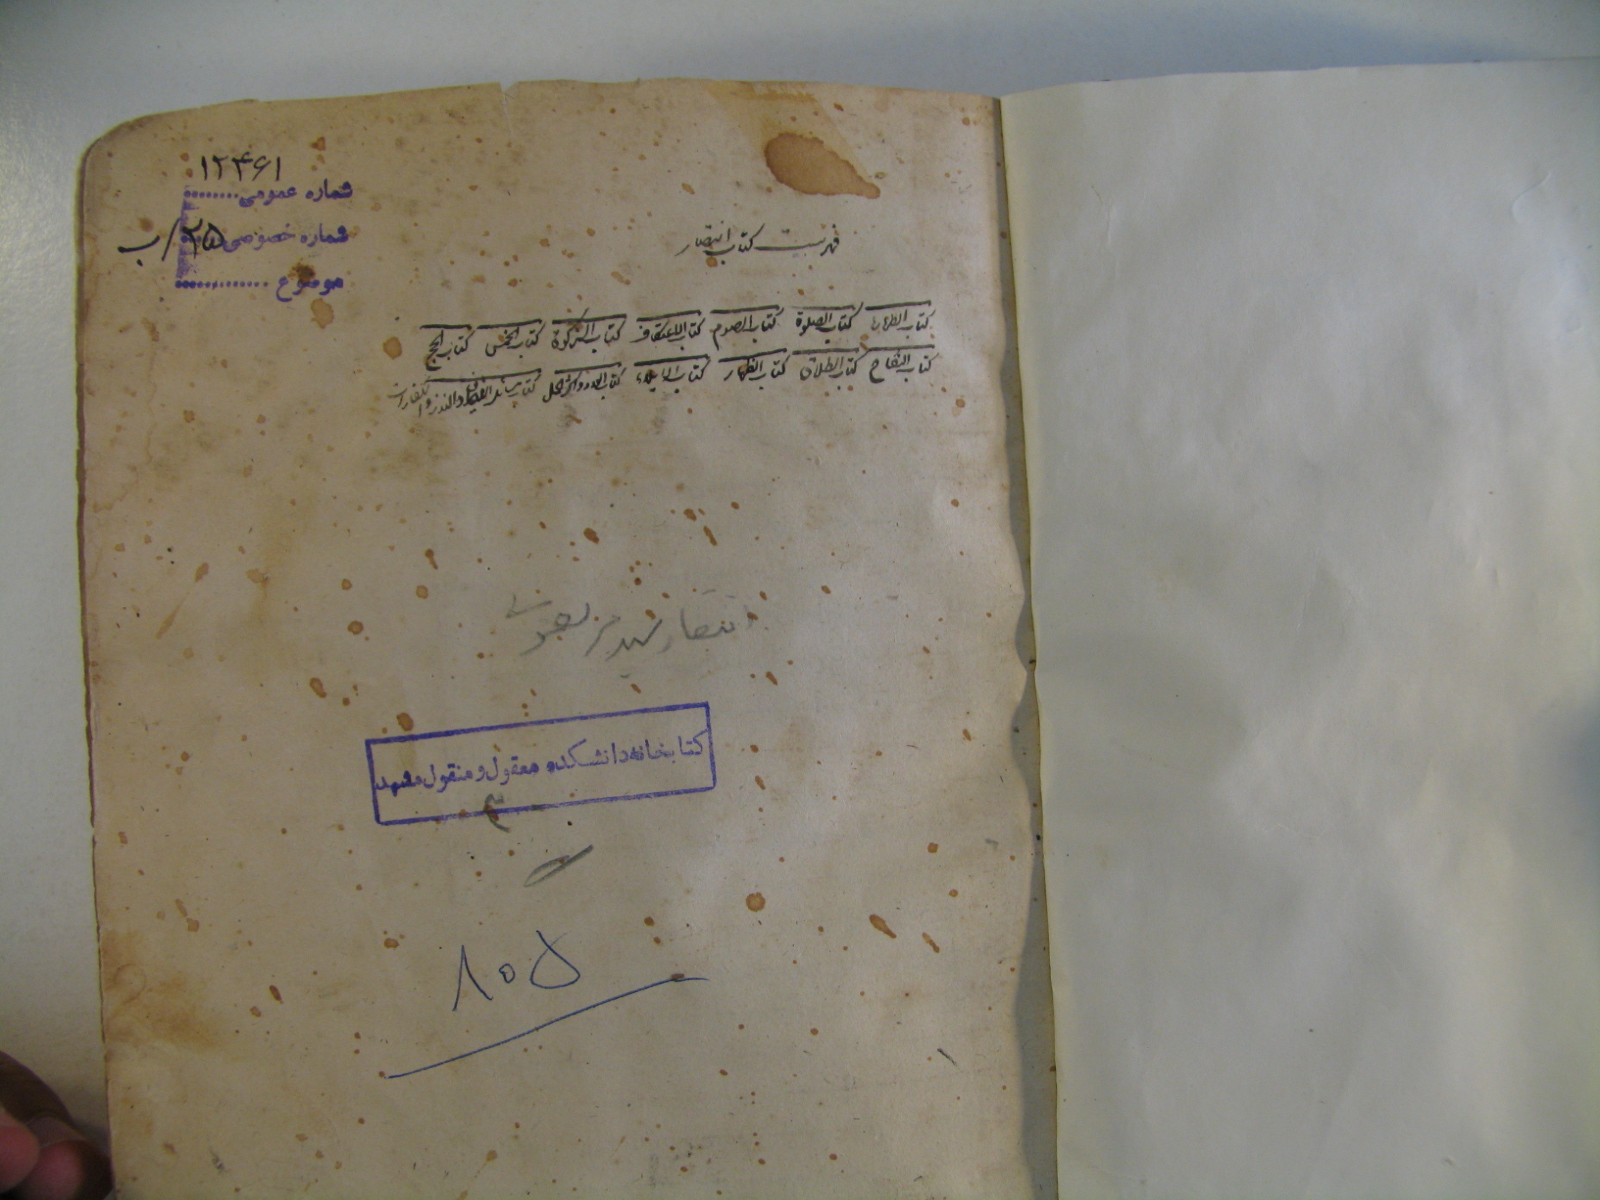 ۱۲۴۶۱
شماره عمومی........
شماره خصوصی ۲۵/ب
موضوع .............
فهرست کتاب انتصار
کتاب الطهارة کتاب الصلوة کتاب الصوم کتاب الاعتکاف کتاب الزکوة کتاب الخمس کتاب الحج
کتاب النکاح کتاب الطلاق کتاب الظهار کتاب الایلاء کتاب اللعان کتاب والنذر و الکفارات
انتصار سید مرتضی
کتابخانه دانشکده معقول و منقول مشهد
۳
۸۰۵